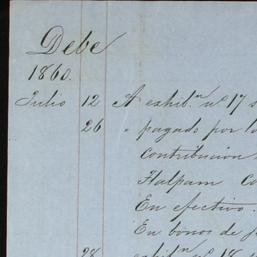 Debe
1860.
Julio 12 A exhib.ⁿ nº 17 s
26 " pagado por la
contribucion
Tlalpam Co
En efectivo.
En bonos de
28 exhib.ⁿ nº 18